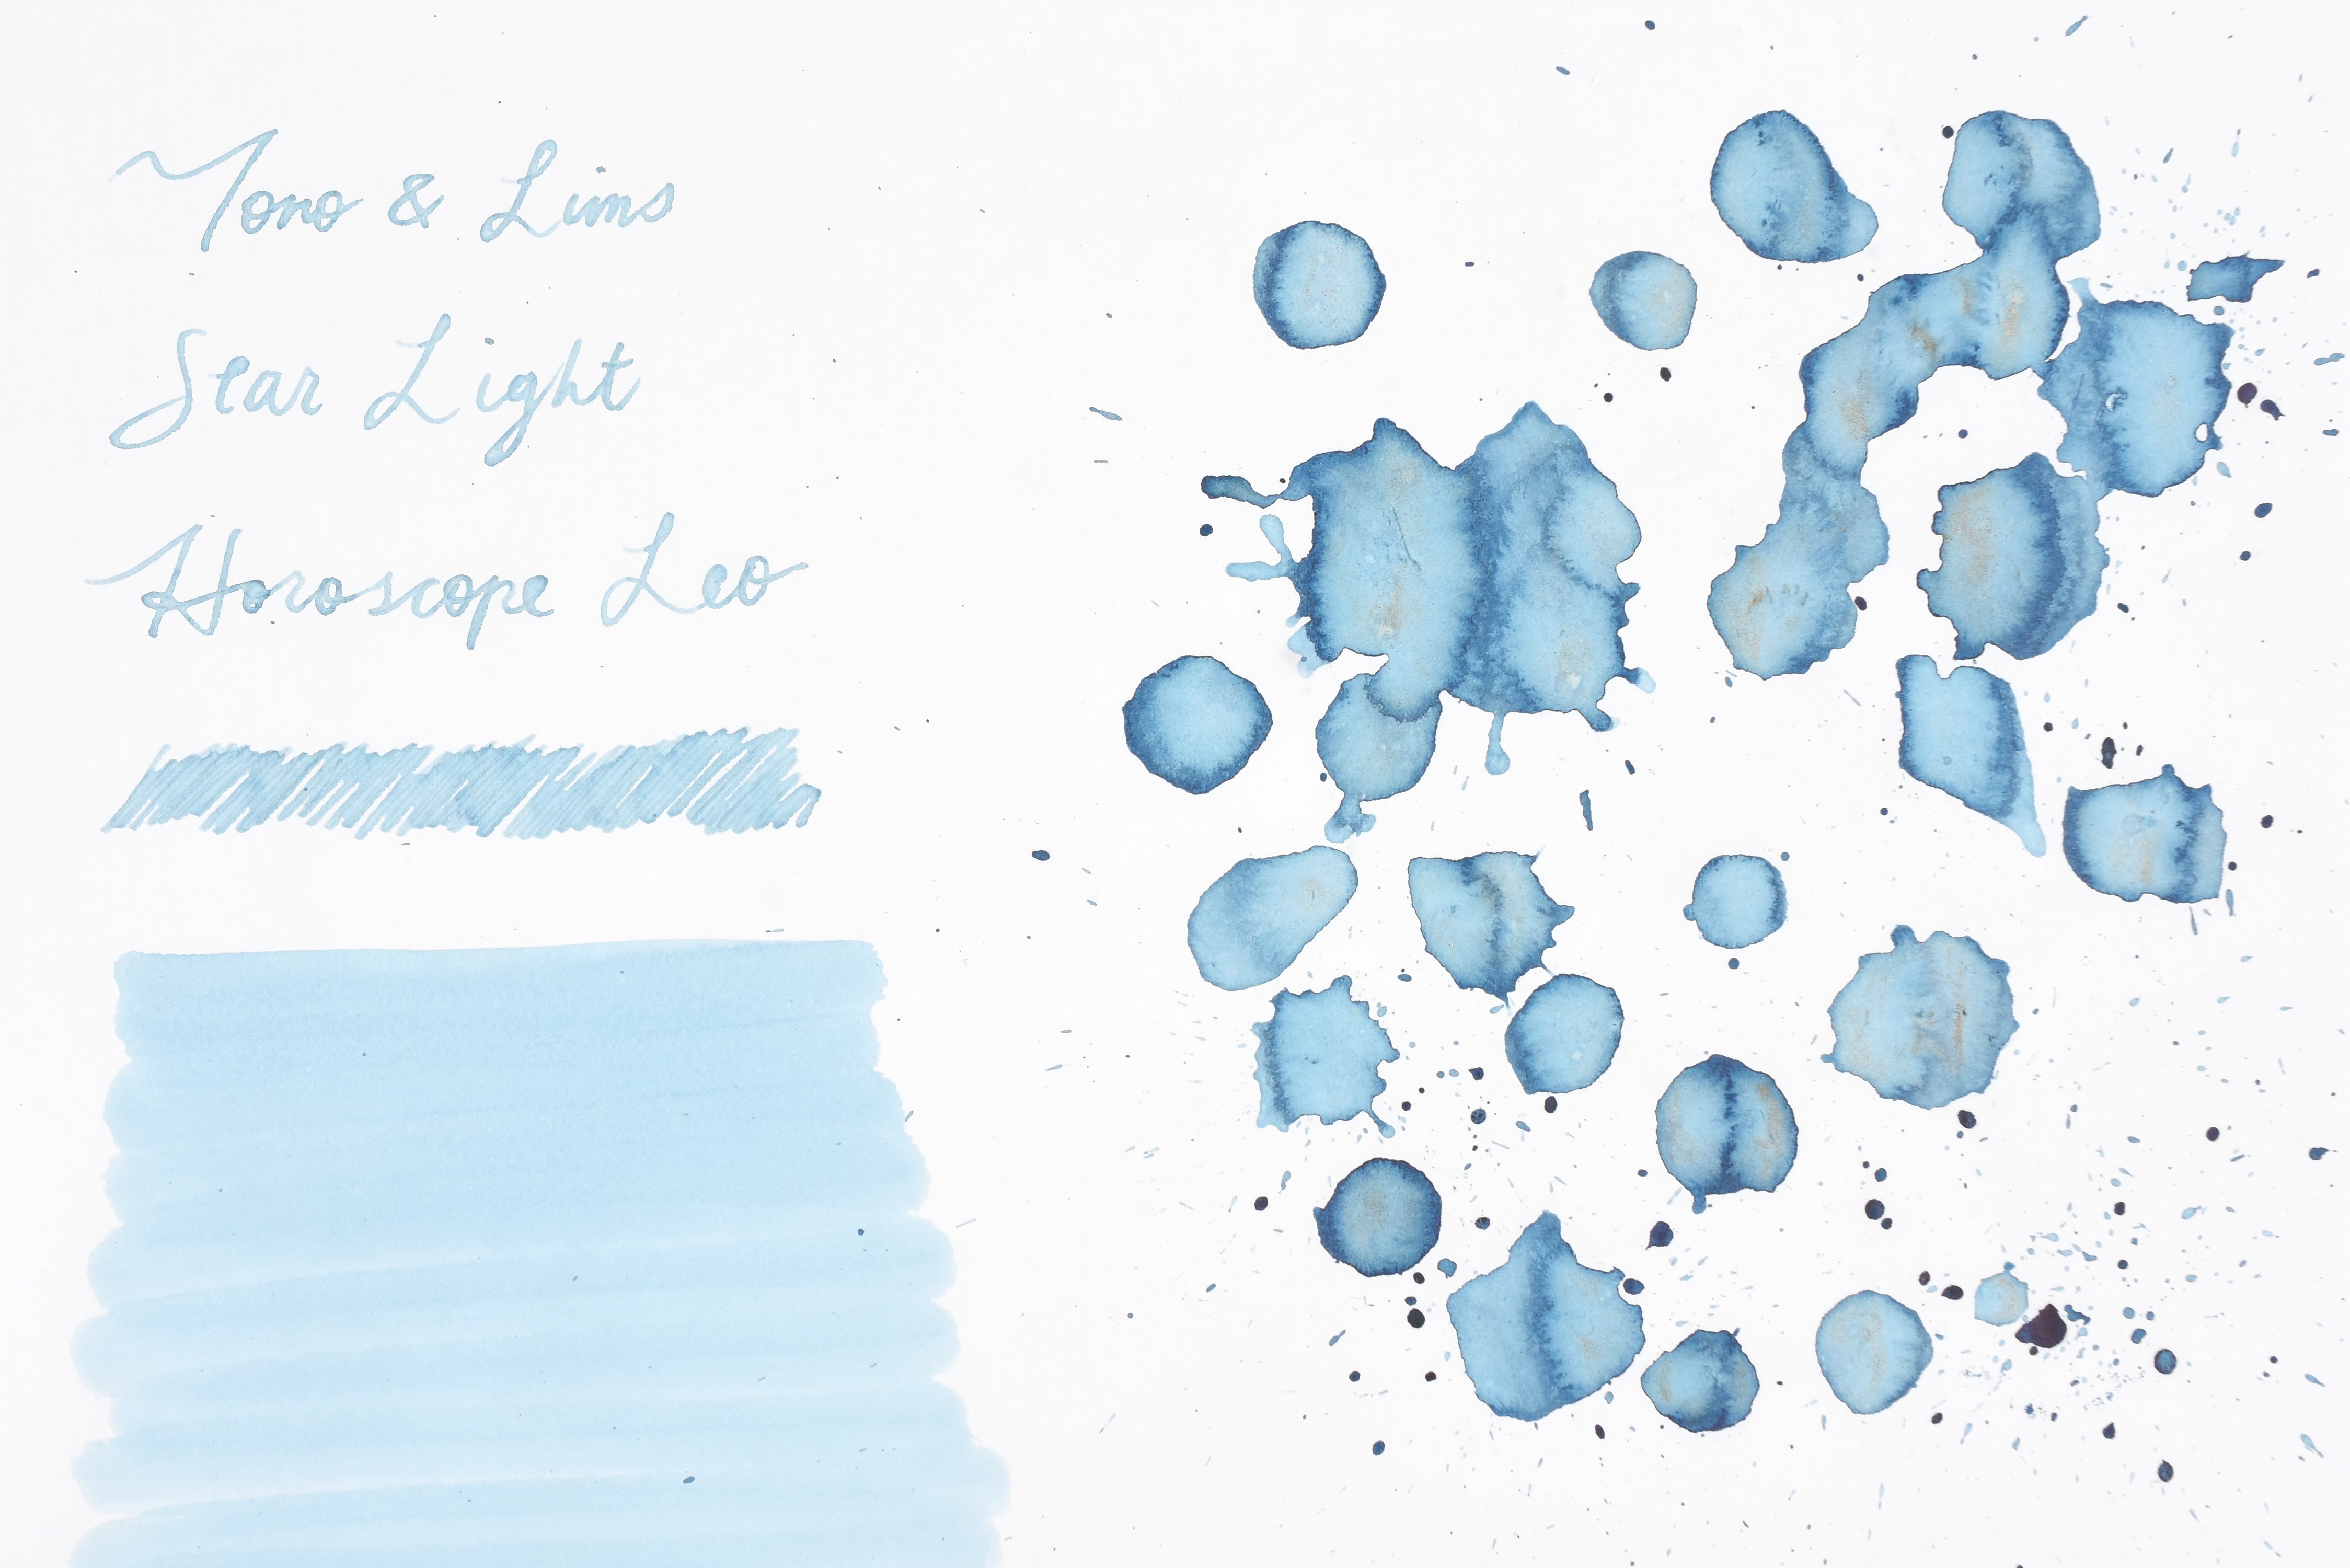 Tono & Lims
Star Light
Horoscope Leo